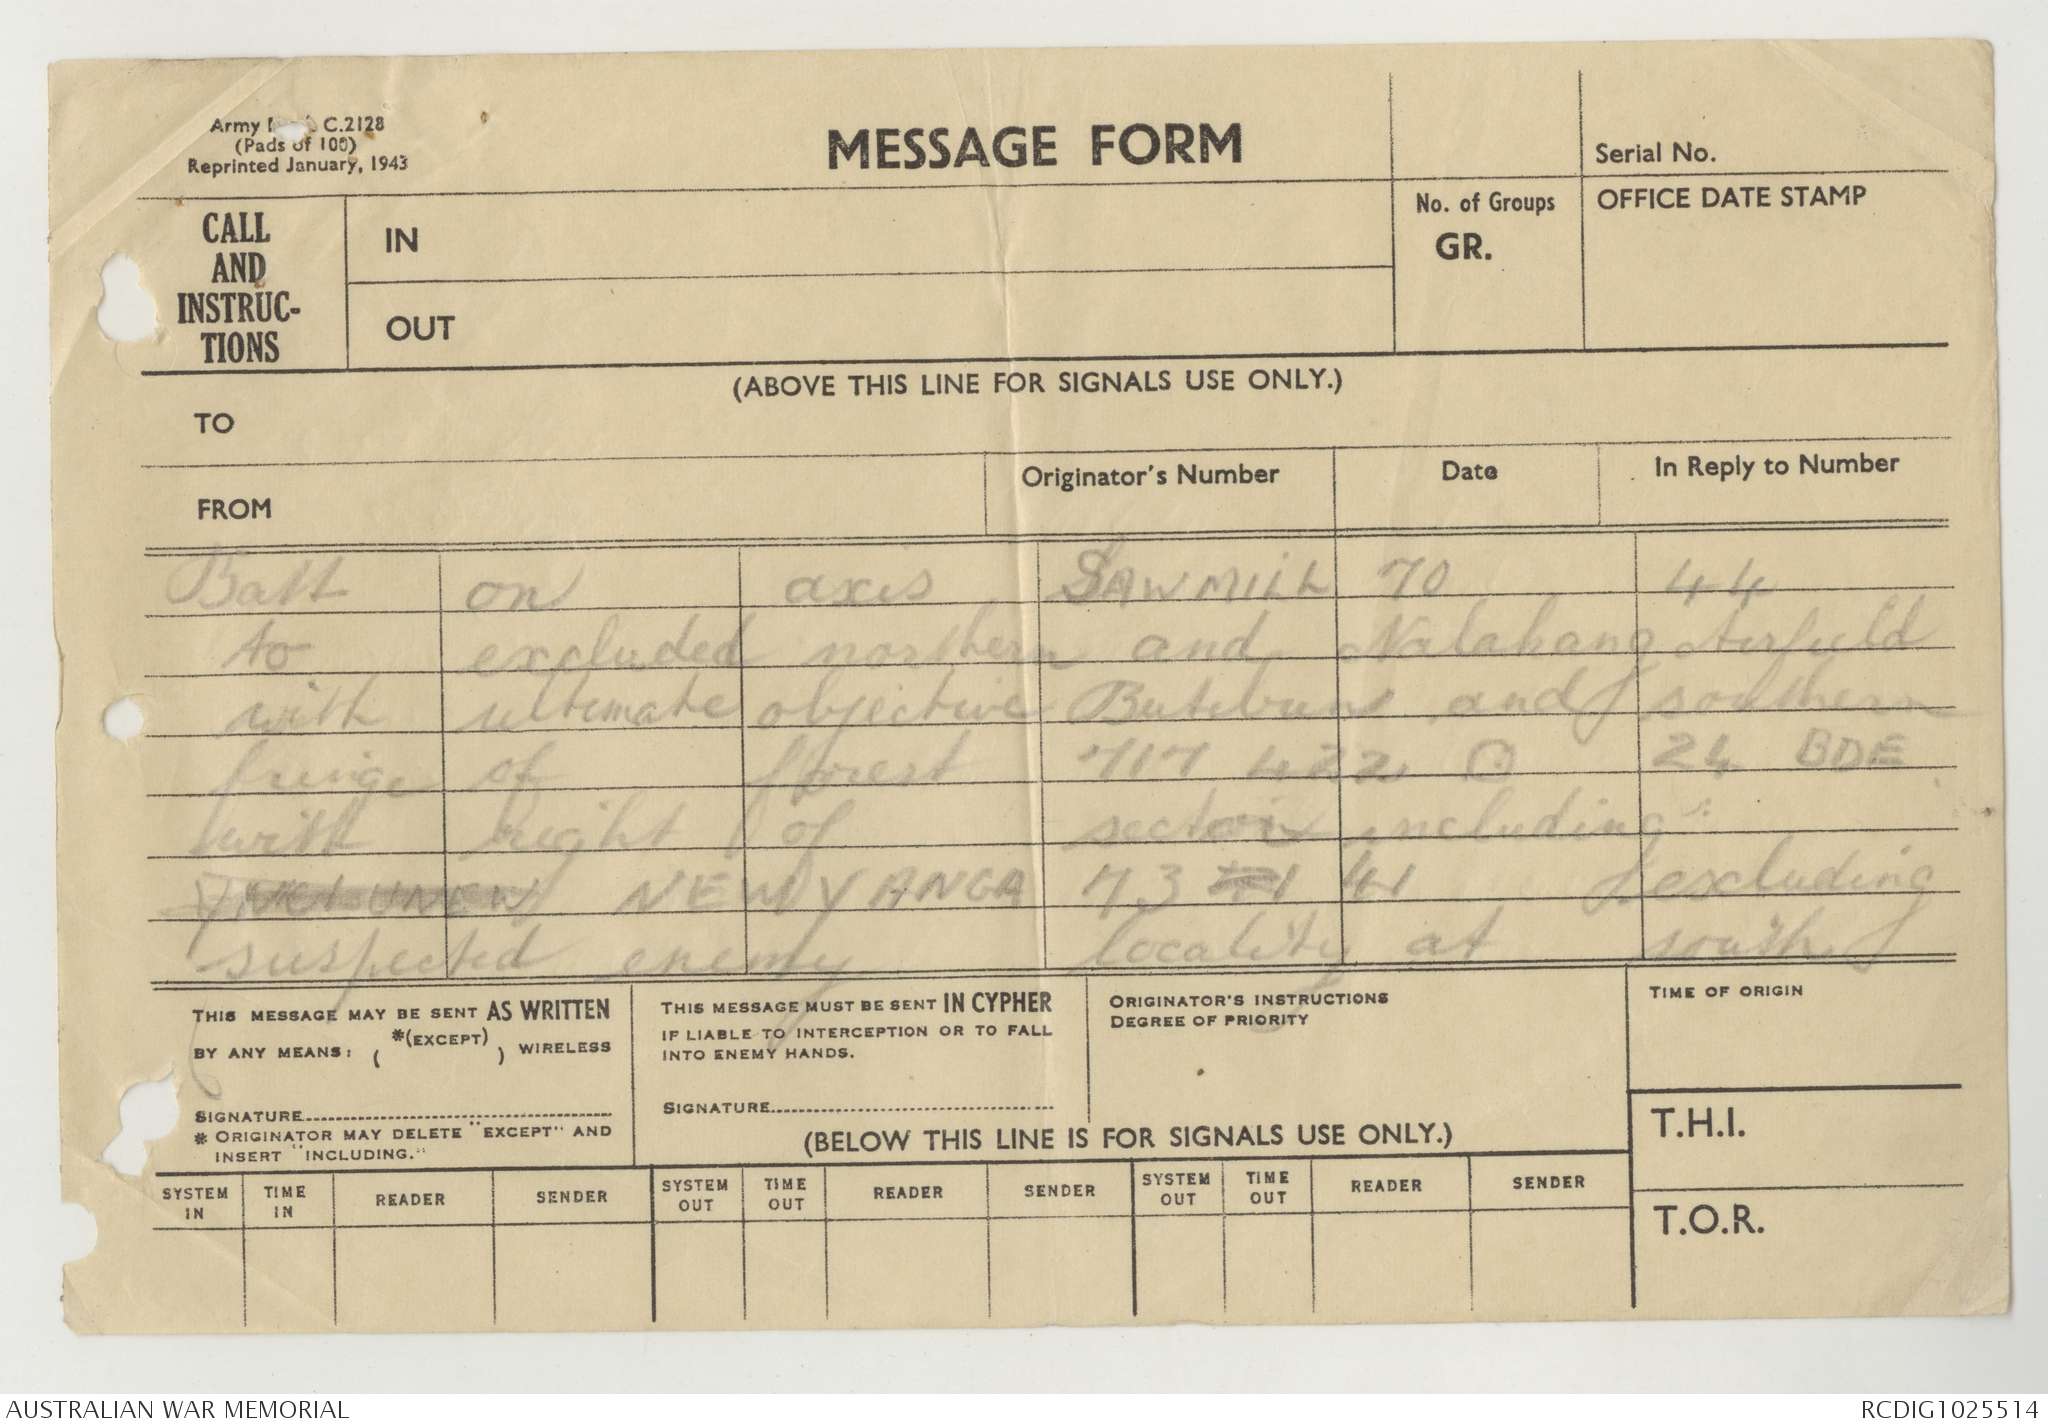 Army C.2128
(Pads of 100)
Reprinted January, 1943
MESSAGE FORM
Serial No.
CALL
AND
INSTRUC-
TIONS
IN
No. of Groups
GR.
OFFICE DATE STAMP
OUT
(ABOVE THIS LINE FOR SIGNALS USE ONLY.)
TO
FROM
Originator's Number
Date
In Reply to Number
Batt on axis SAWMILL 70 44
to excluded northern and Nalahang Airfield
with ultimate objective Butibum and southern
fringe of forest 717 422 . 24 BDE
with right of sector including
NEWYANGA 73 41 excluding
suspected enemy locality at south
THIS MESSAGE MAY BE SENT AS WRITTEN
BY ANY MEANS: ( *(EXCEPT) ) WIRELESS
SIGNATURE
* ORIGINATOR MAY DELETE "EXCEPT" AND
INSERT "INCLUDING."
THIS MESSAGE MUST BE SENT IN CYPHER
IF LIABLE TO INTERCEPTION OR TO FALL
INTO ENEMY HANDS.
SIGNATURE
ORIGINATOR'S INSTRUCTIONS
DEGREE OF PRIORITY
TIME OF ORIGIN
(BELOW THIS LINE IS FOR SIGNALS USE ONLY.)
T.H.I.
SYSTEM IN TIME IN READER SENDER SYSTEM OUT TIME OUT READER SENDER SYSTEM OUT TIME OUT READER SENDER
T.O.R.
AUSTRALIAN WAR MEMORIAL
RCDIG1025514